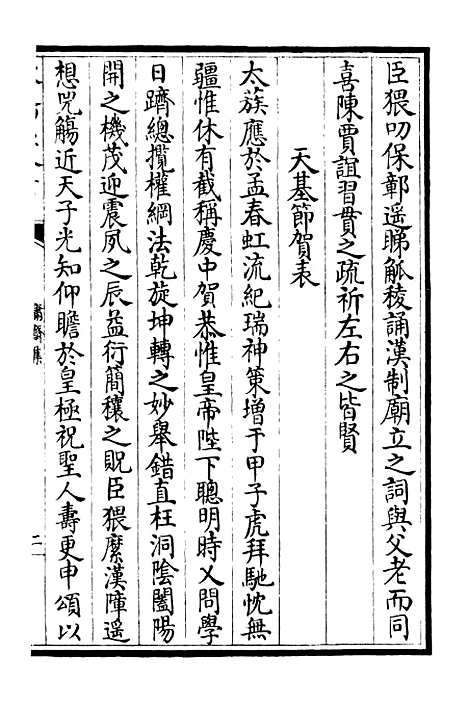 臣猥叨保鄣遥睇觚稜誦漢制廟立之詞與父老而同
喜陳賈誼習貫之疏祈左右之皆賢
天基節賀表
太蔟應於孟春虹流紀瑞神策增于甲子虎拜馳忱無
疆惟休有截稱慶中賀恭惟皇帝陛下聰明時乂問學
日躋總攬權綱法乾旋坤轉之妙舉錯直枉洞陰闔陽
開之機茂迎震夙之辰益衍簡穰之貺臣猥縻漢障遥
想兕觴近天子光知仰瞻於皇極祝聖人壽更申頌以
庸齋集
二